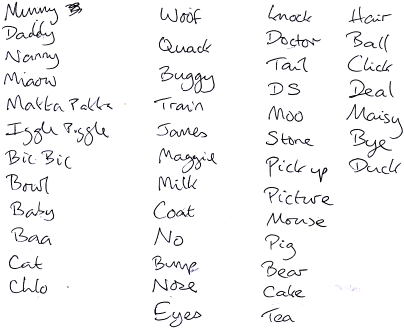 Mummy
Daddy
Nanny
Miaow
Makka Pakka
Iggle Piggle
Bic Bic
Bowl
Baby
Baa
Cat
Chlo
Woof
Quack
Buggy
Train
James
Maggie
Milk
Coat
No
Bump
Nose
Eyes
Knock
Doctor
Tail
DS
Moo
Stone
Pick up
Picture
Mouse
Pig
Bear
Cake
Tea
Hair
Ball
Click
Deal
Maisy
Bye
Duck